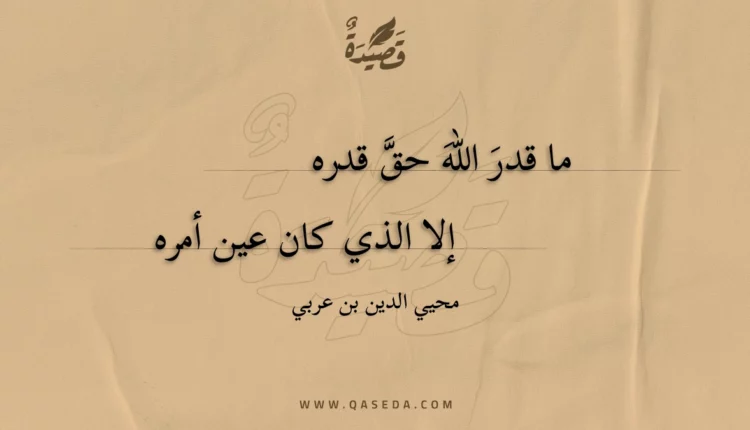 قَصِيْدَةٌ
ما قدرَ اللهَ حقَّ قدره
إلا الذي كان عين أمره
محيي الدين بن عربي
WWW.QASEDA.COM